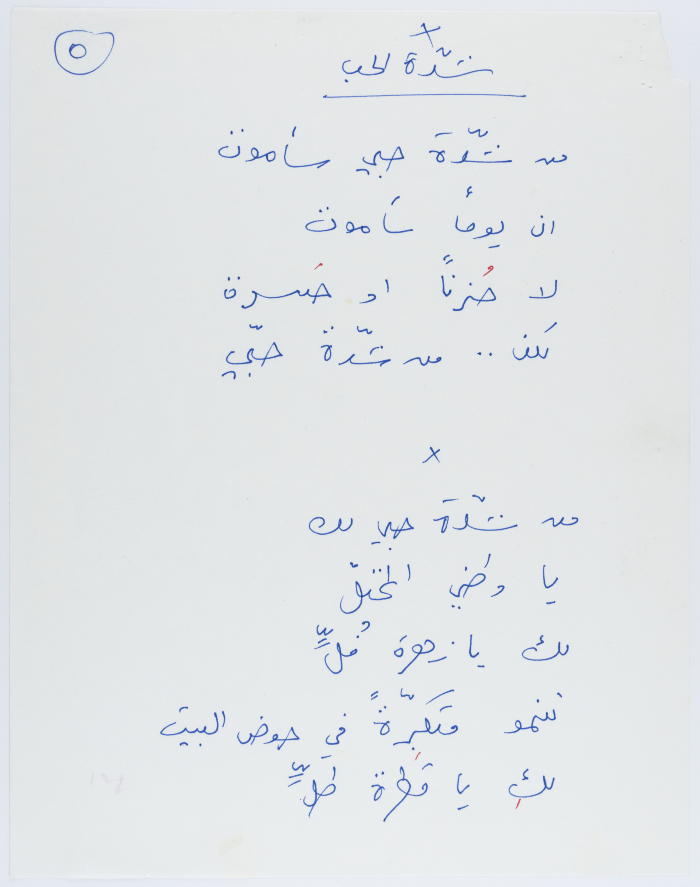 ٥
×
شدّة الحب
من شدّة حبي سأموت
ان يوماً سأموت
لا حُزناً او حَسرة
لكن .. من شدّة حبّي
×
من شدّة حبي لك
يا وطني المحتلّ
لك يا زهرة فُلٍّ
تنمو متكبّرةً في حوض البيت
لكِ يا قَطرة طلٍّ